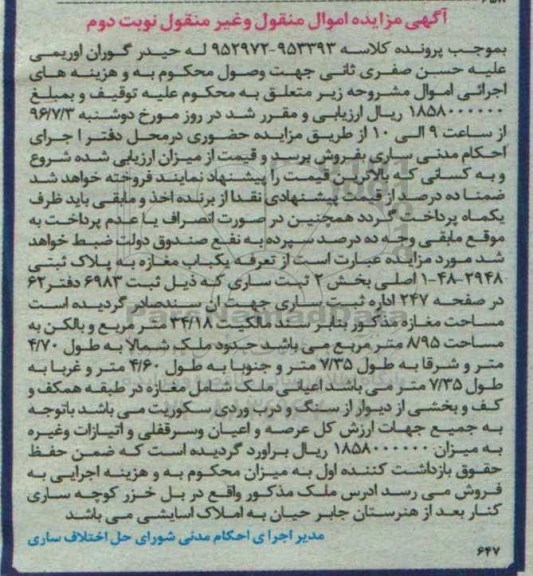 آگهی مزایده اموال منقول وغیر منقول نوبت دوم
بموجب پرونده کلاسه ۹۵۳۳۹۳-۹۵۲۹۷۲ له حیدر گوران اوریمی
علیه حسن صفری ثانی جهت وصول محکوم به و هزینه های
اجرائی اموال مشروحه زیر متعلق به محکوم علیه توقیف و بمبلغ
۱۸۵۸۰۰۰۰۰۰ ریال ارزیابی و مقرر شد در روز مورخ دوشنبه ۹۶/۷/۳
از ساعت ۹ الی ۱۰ از طریق مزایده حضوری درمحل دفتر اجرای
احکام مدنی ساری بفروش برسد و قیمت از میزان ارزیابی شده شروع
و به کسانی که بالاترین قیمت را پیشنهاد نمایند فروخته خواهد شد
ضمنا ده درصد از قیمت پیشنهادی نقدا از برنده اخذ و مابقی باید ظرف
یکماه پرداخت گردد همچنین در صورت انصراف یا عدم پرداخت به
موقع مابقی وجه ده درصد سپرده به نفع صندوق دولت ضبط خواهد
شد مورد مزایده عبارت است از تعرفه یکباب مغازه به پلاک ثبتی
۱-۴۸-۲۹۴۸ اصلی بخش ۲ ثبت ساری که ذیل ثبت ۶۹۸۳ دفتر ۶۲
در صفحه ۲۴۷ اداره ثبت ساری جهت ان سندصادر گردیده است
مساحت مغازه مذکور بنابر سند مالکیت ۳۴/۱۸ متر مربع و بالکن به
مساحت ۸/۹۵ متر مربع می باشد حدود ملک شمالا به طول ۴/۷۰
متر و شرقا به طول ۷/۳۵ متر و جنوبا به طول ۴/۶۰ متر و غربا به
طول ۷/۳۵ متر می باشد اعیانی ملک شامل مغازه در طبقه همکف و
کف و بخشی از دیوار از سنگ و درب وردی سکوریت می باشد باتوجه
به جمیع جهات ارزش کل عرصه و اعیان وسرقفلی و اتیازات وغیره
به میزان ۱۸۵۸۰۰۰۰۰۰ ریال براورد گردیده است که ضمن حفظ
حقوق بازداشت کننده اول به میزان محکوم به و هزینه اجرایی به
فروش می رسد ادرس ملک مذکور واقع در بل خزر کوچه ساری
کنار بعد از هنرستان جابر حیان به املاک اسایشی می باشد
مدیر اجرای احکام مدنی شورای حل اختلاف ساری
۶۴۷
ParsNamadData